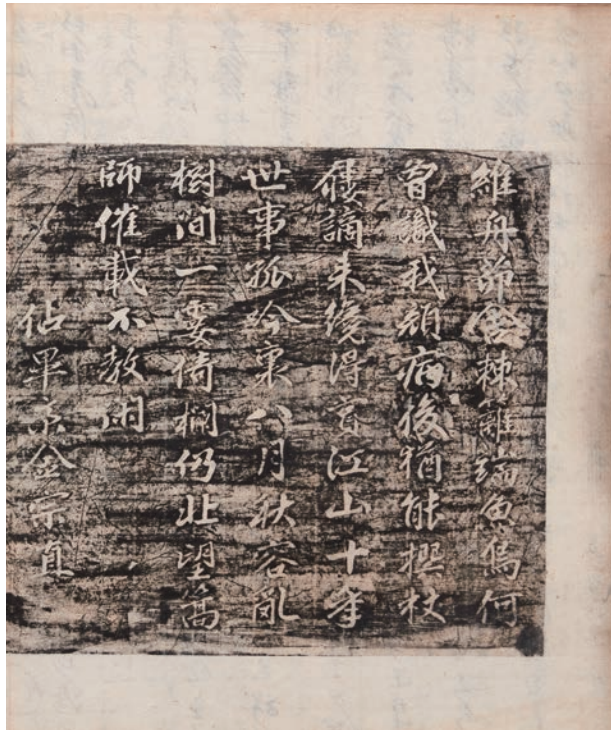 維舟茆舍棘籬端魚鳥何
曾識我顔病後猶能撰杖
屨謫來纔得賞江山十年
世事孤吟裏八月秋容亂
樹間一霎倚欄仍北望篙
師催載不教閒
佔畢齋金宗直